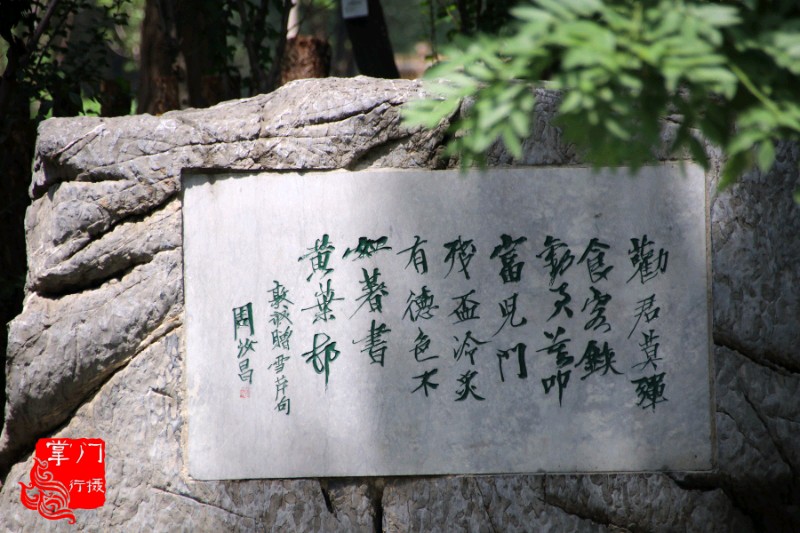 勸君莫彈
食客鋏
勸君莫叩
富児門
殘盃冷炙
有德色不
如著書
黄葉邨
敦誠贈雪芹句
周汝昌
掌门
行摄